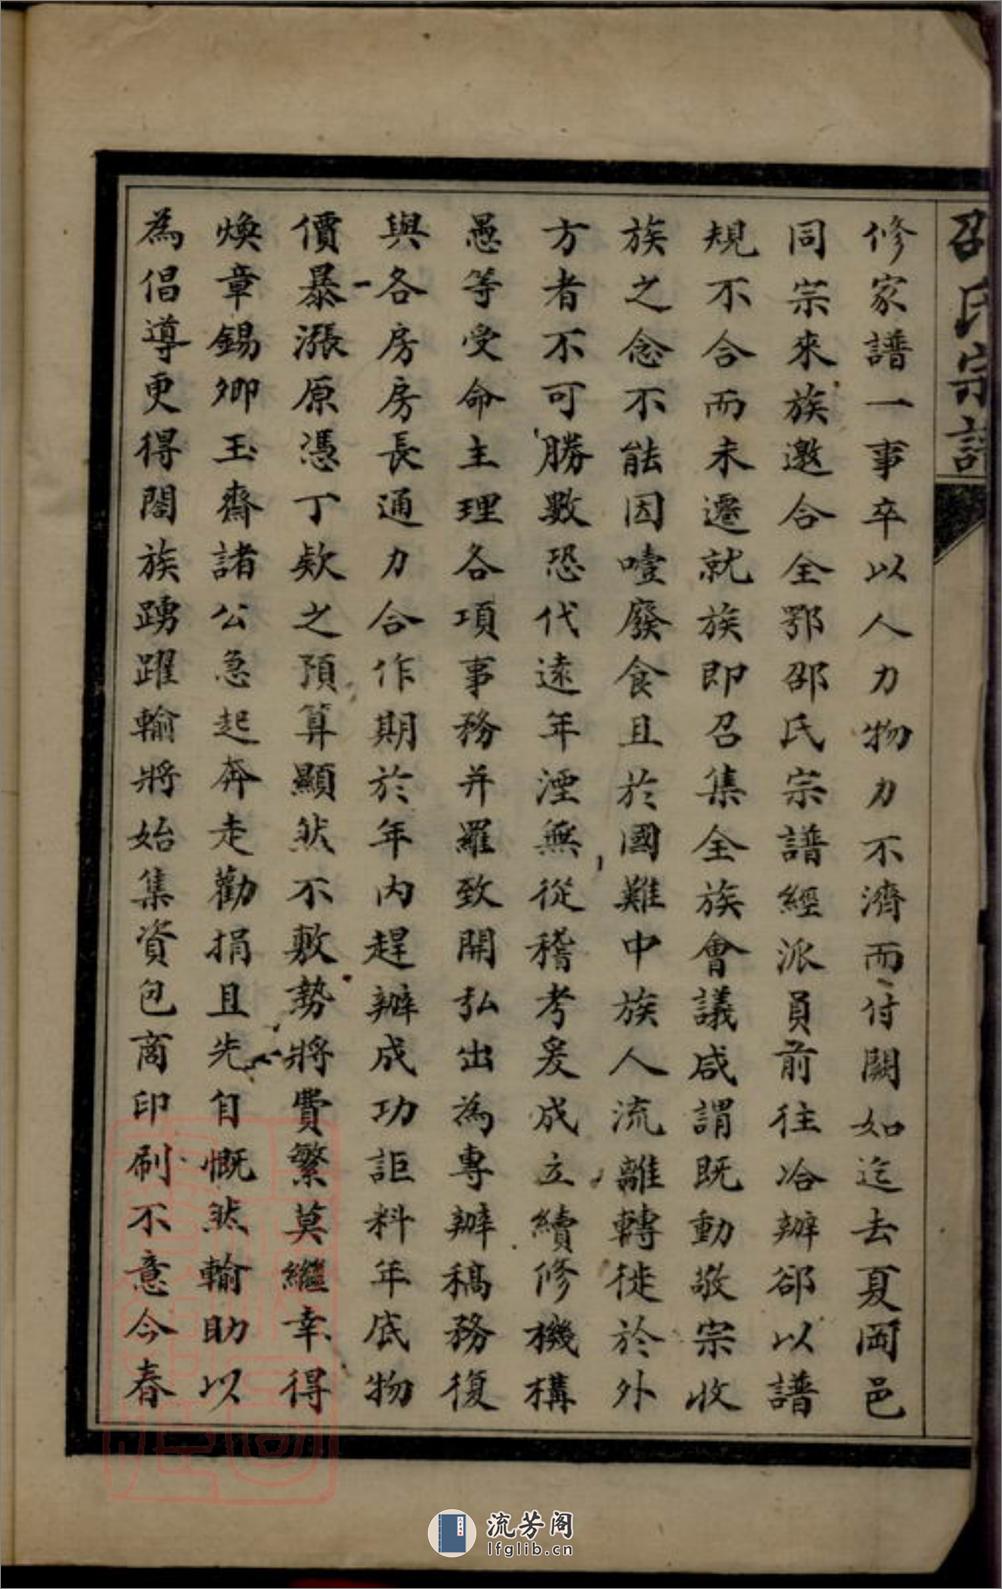 邵氏宗譜
修家譜一事卒以人力物力不濟而付闕如迄去夏岡邑
同宗來族邀合全鄂邵氏宗譜經派員前往洽辦郤以譜
規不合而未遷就族即召集全族會議咸謂既動敬宗收
族之念不能因噎廢食且於國難中族人流離轉徙於外
方者不可勝數恐代遠年湮無從稽考爰成立續修機構
愚等受命主理各項事務并羅致開弘出為專辦稿務復
與各房房長通力合作期於年內趕辦成功詎料年底物
價暴漲原憑丁欵之預算顯然不敷勢將費繁莫繼幸得
煥章錫卿玉齋諸公急起奔走勸捐且先自慨然輸助以
為倡導更得閤族踴躍輸將始集資包商印刷不意今春
流芳阁
lfglib.cn